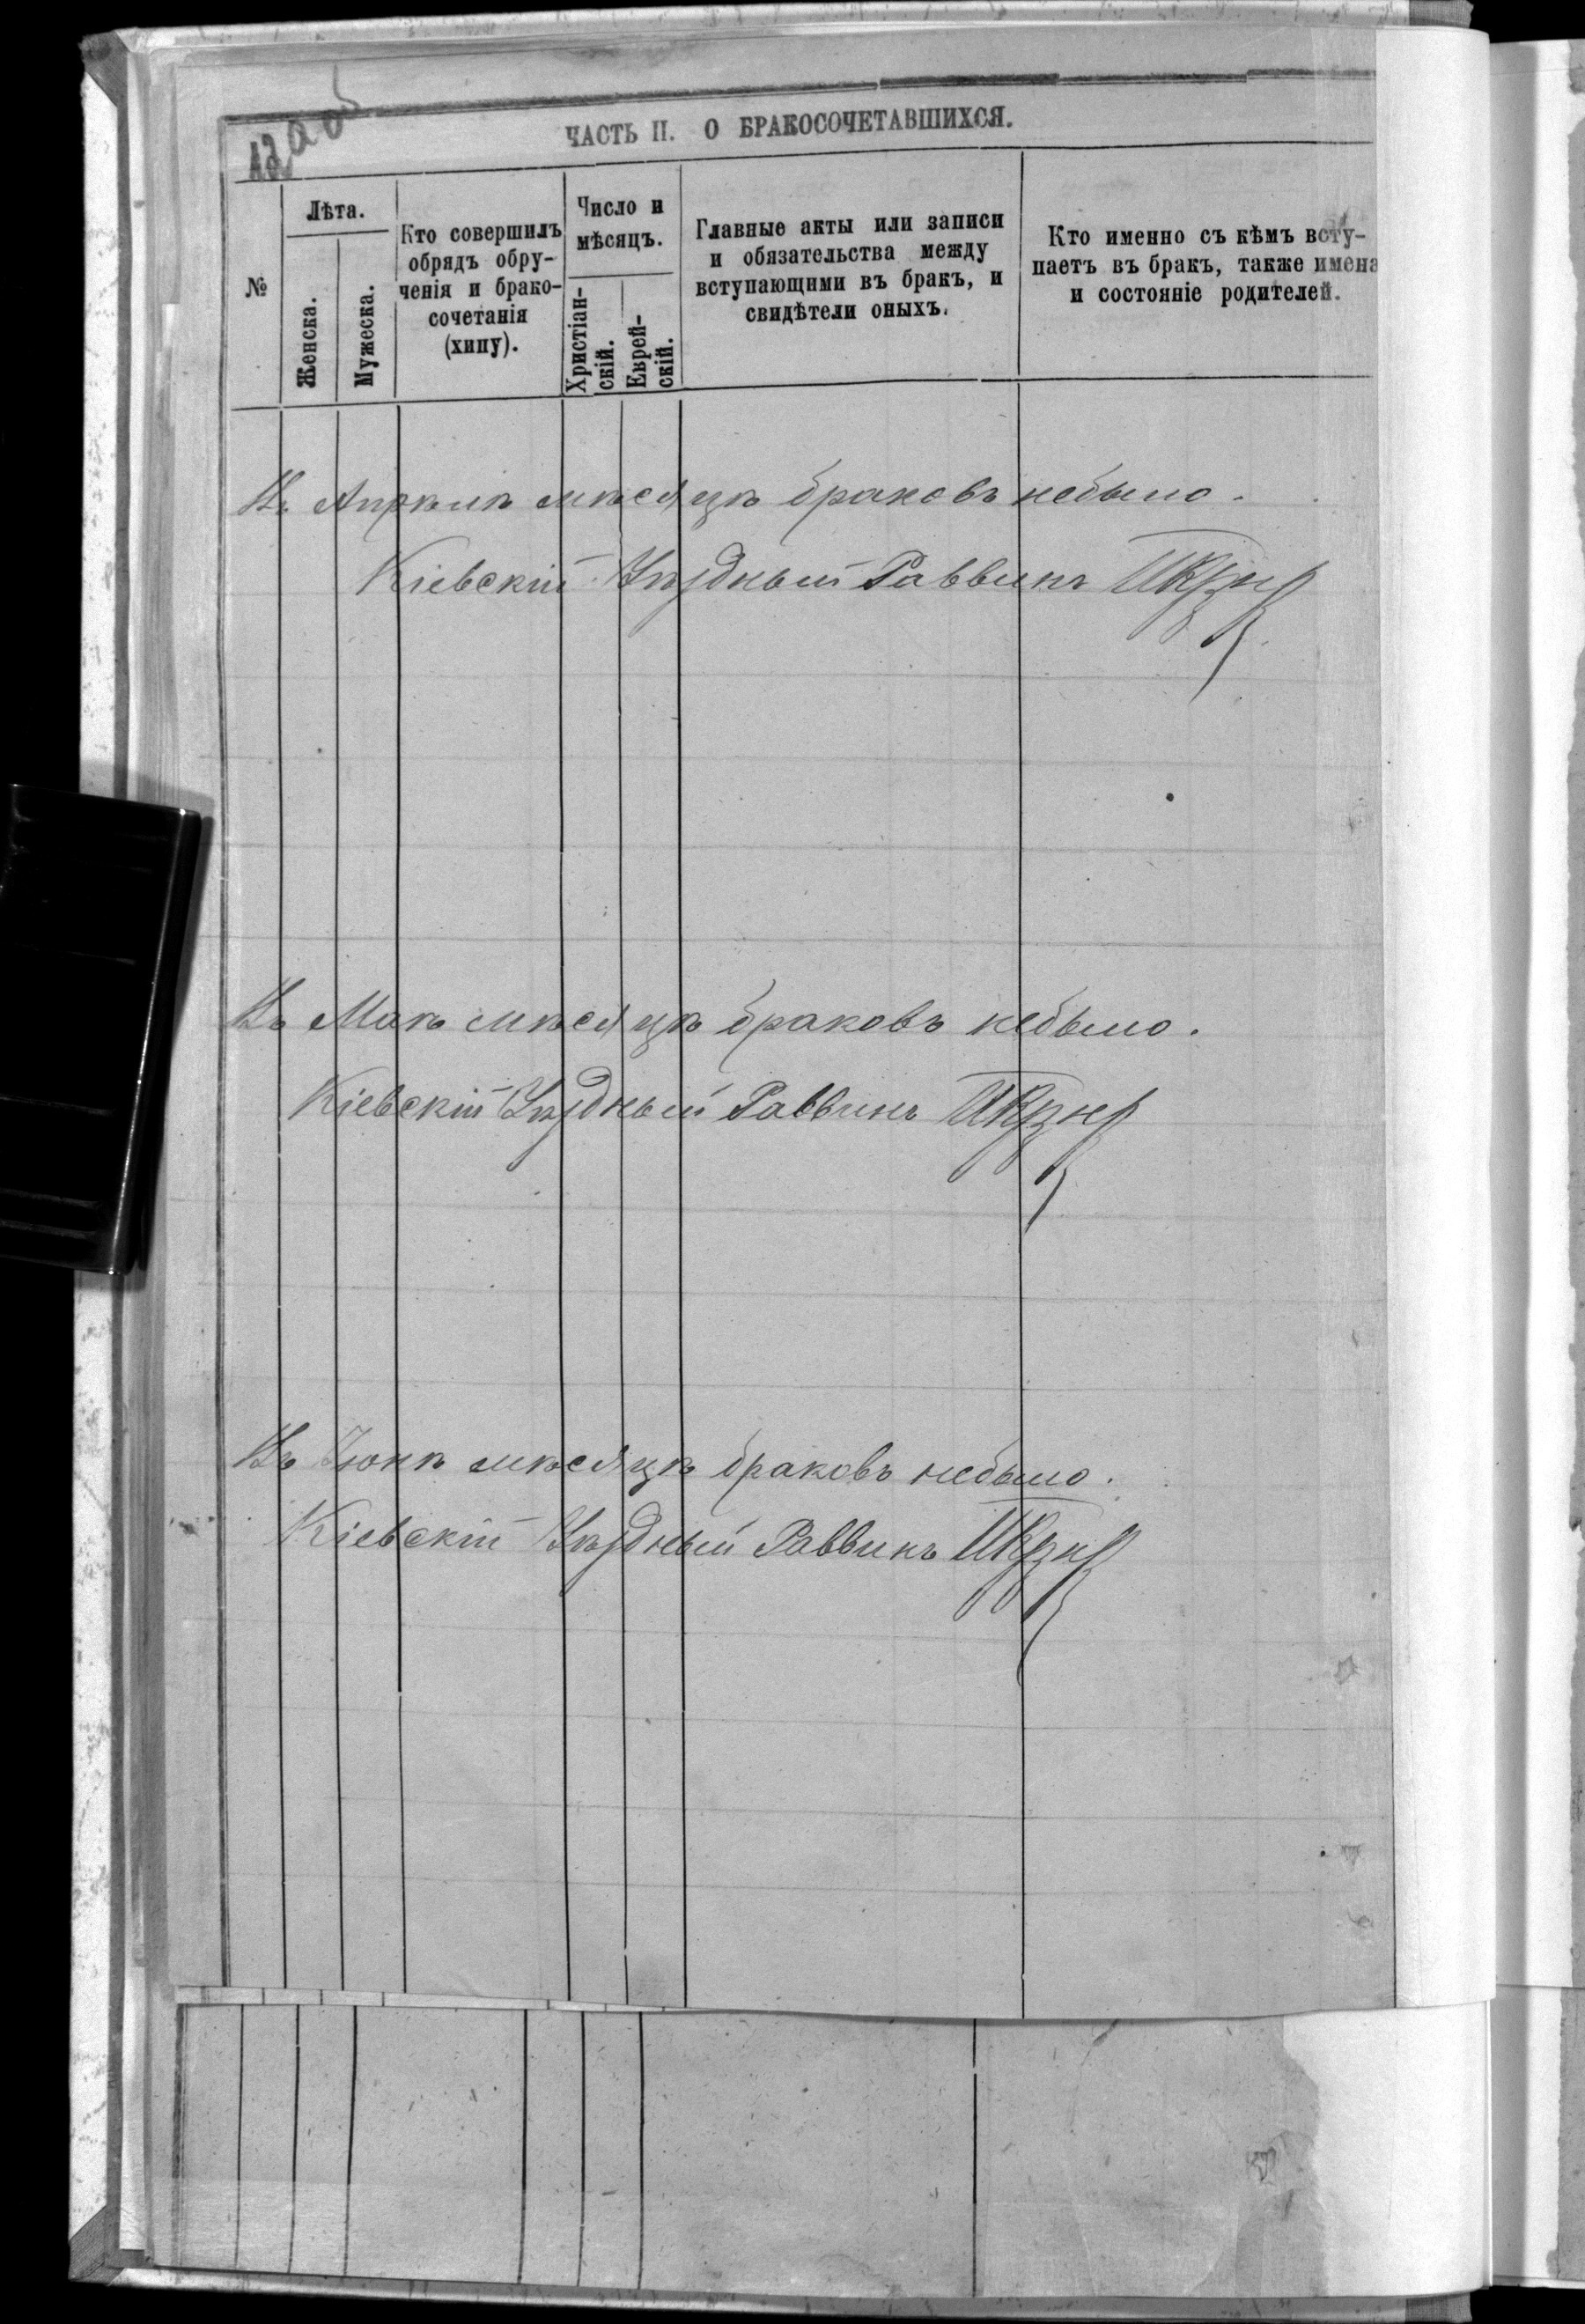 12 аоб
ЧАСТЬ II. О БРАКОСОЧЕТАВШИХСЯ.
№
Лѣта.
Женска.
Мужеска.
Кто совершилъ
обрядъ обру-
ченія и брако-
сочетанія
(хипу).
Число и
мѣсяцъ.
Христіан-
скій.
Еврей-
скій.
Главные акты или записи
и обязательства между
вступающими въ бракъ, и
свидѣтели оныхъ.
Кто именно съ кѣмъ всту-
паетъ въ бракъ, также имена
и состояніе родителей.
Въ Апрѣлѣ мѣсяцѣ браковъ небыло.
Кіевскій Уѣздный Раввинъ
Въ Маѣ мѣсяцѣ браковъ небыло.
Кіевскій Уѣздный Раввинъ
Въ Іюнѣ мѣсяцѣ браковъ небыло.
Кіевскій Уѣздный Раввинъ